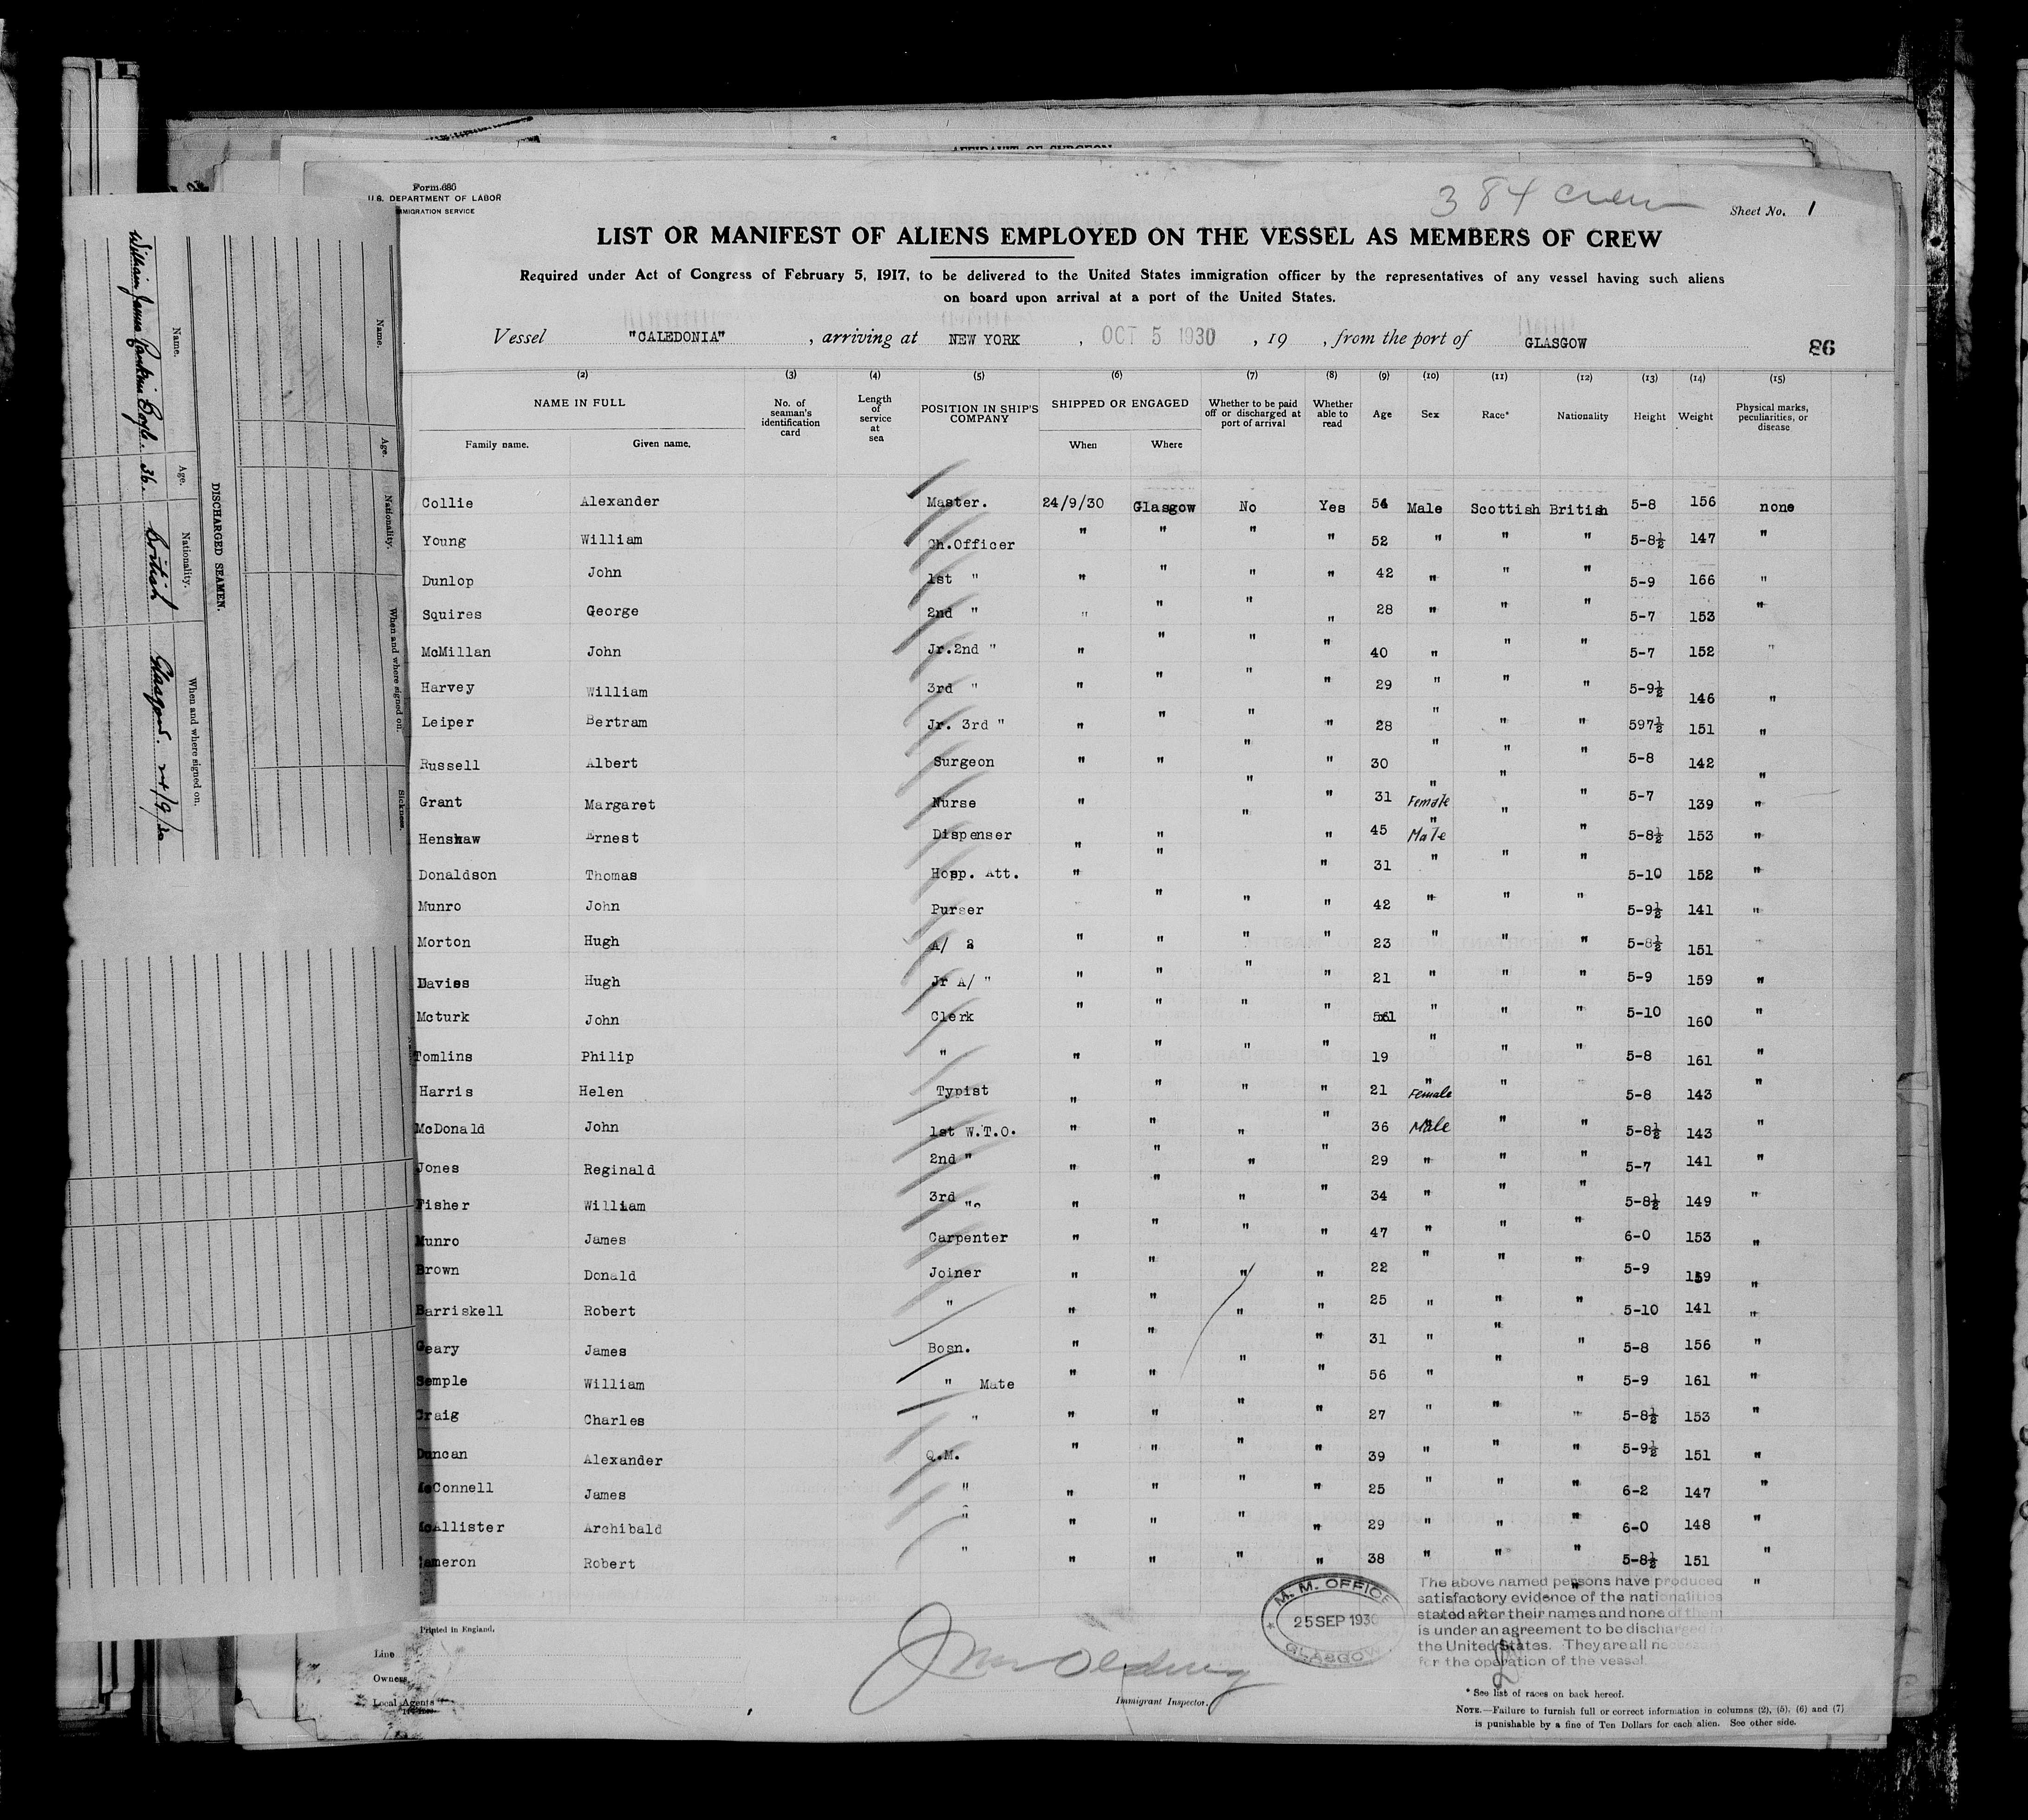 AFFIDAVIT OF SURGEON
Form 680
U.S. DEPARTMENT OF LABOR
IMMIGRATION SERVICE
384 crew
Sheet No. 1
LIST OR MANIFEST OF ALIENS EMPLOYED ON THE VESSEL AS MEMBERS OF CREW
Required under Act of Congress of February 5, 1917, to be delivered to the United States immigration officer by the representatives of any vessel having such aliens
on board upon arrival at a port of the United States.
Vessel "CALEDONIA" , arriving at NEW YORK , OCT 5 1930 , 19 , from the port of GLASGOW
86
(2) (3) (4) (5) (6) (7) (8) (9) (10) (11) (12) (13) (14) (15)
NAME IN FULL No. of seaman's identification card Length of service at sea POSITION IN SHIP'S COMPANY SHIPPED OR ENGAGED Whether to be paid off or discharged at port of arrival Whether able to read Age Sex Race* Nationality Height Weight Physical marks, peculiarities, or disease
Family name. Given name. When Where
Collie Alexander Master. 24/9/30 Glasgow No Yes 54 Male Scottish British 5-8 156 none
Young William Ch.Officer " " " " 52 " " " 5-8½ 147 "
Dunlop John 1st " " " " " 42 " " " 5-9 166 "
Squires George 2nd " " " " " 28 " " " 5-7 153 "
McMillan John Jr.2nd " " " " " 40 " " " 5-7 152 "
Harvey William 3rd " " " " " 29 " " " 5-9½ 146 "
Leiper Bertram Jr. 3rd " " " " " 28 " " " 597½ 151 "
Russell Albert Surgeon " " " " 30 " " " 5-8 142 "
Grant Margaret Nurse " " " 31 " Female " " 5-7 139 "
Henshaw Ernest Dispenser " " " " 45 " Male " " 5-8½ 153 "
Donaldson Thomas Hosp. Att. " " " 31 " " " 5-10 152 "
Munro John Purser " " " 42 " " " 5-9½ 141 "
Morton Hugh A/ " " " " 23 " " " 5-8½ 151
Davies Hugh Jr A/ " " " " " 21 " " " 5-9 159 "
Mcturk John Clerk " " " " " " " 5-10 160 "
Tomlins Philip " " " " " 19 " " " 5-8 161 "
Harris Helen Typist " " " " 21 " Female " " 5-8 143 "
McDonald John 1st W.T.O. " " " " 36 Male " " 5-8½ 143 "
Jones Reginald 2nd " " " " " 29 " " " 5-7 141 "
Fisher William 3rd " " " " " 34 " " " 5-8½ 149 "
Munro James Carpenter " " " " 47 " " " 6-0 153 "
Brown Donald Joiner " " " " 22 " " " 5-9 159 "
Barriskell Robert " " " " " 25 " " " 5-10 141 "
Geary James Bosn. " " " 31 " " " 5-8 156 "
Semple William " Mate " " " " 56 " " " 5-9 161 "
Craig Charles " " " " " 27 " " " 5-8½ 153 "
Duncan Alexander Q.M. " " " " 39 " " " 5-9½ 151 "
McConnell James " " " " " 25 " " " 6-2 147 "
McAllister Archibald " " " " " 29 " " " 6-0 148 "
Cameron Robert " " " " " 38 " " " 5-8½ 151 "
" "
Printed in England.
Line
Owners
Local Agents
Immigrant Inspector.
M. M. OFFICE
25 SEP 1930
GLASGOW
The above named persons have produced
satisfactory evidence of the nationalities
stated after their names and none of them
is under an agreement to be discharged in
the United States. They are all necessary
for the operation of the vessel
* See list of races on back hereof.
NOTE.—Failure to furnish full or correct information in columns (2), (5), (6) and (7)
is punishable by a fine of Ten Dollars for each alien. See other side.
DISCHARGED SEAMEN.
Name. Age. Nationality. When and where signed on.
William James Rankin Boyle. 36. British Glasgow. 24/9/30
Name. Age. Nationality. When and where signed on. Sickness.